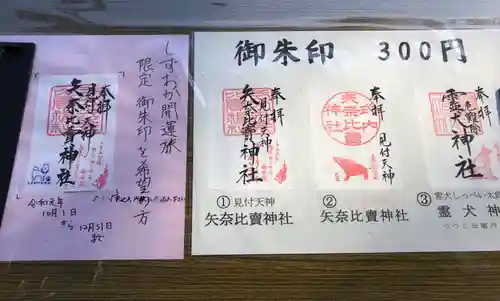 しずおか開運旅
限定 御朱印を希望の方
奉拝
見付天神
矢奈比賣神社
令和元年
10月1日
から
12月31日
まで
御朱印 300円
奉拝
見付天神
矢奈比賣神社
① 見付天神
矢奈比賣神社
奉拝
見付天神
矢奈比賣神社
②
矢奈比賣神社
奉拝
霊犬神社
③ 霊犬しっぺい太郎
霊犬神